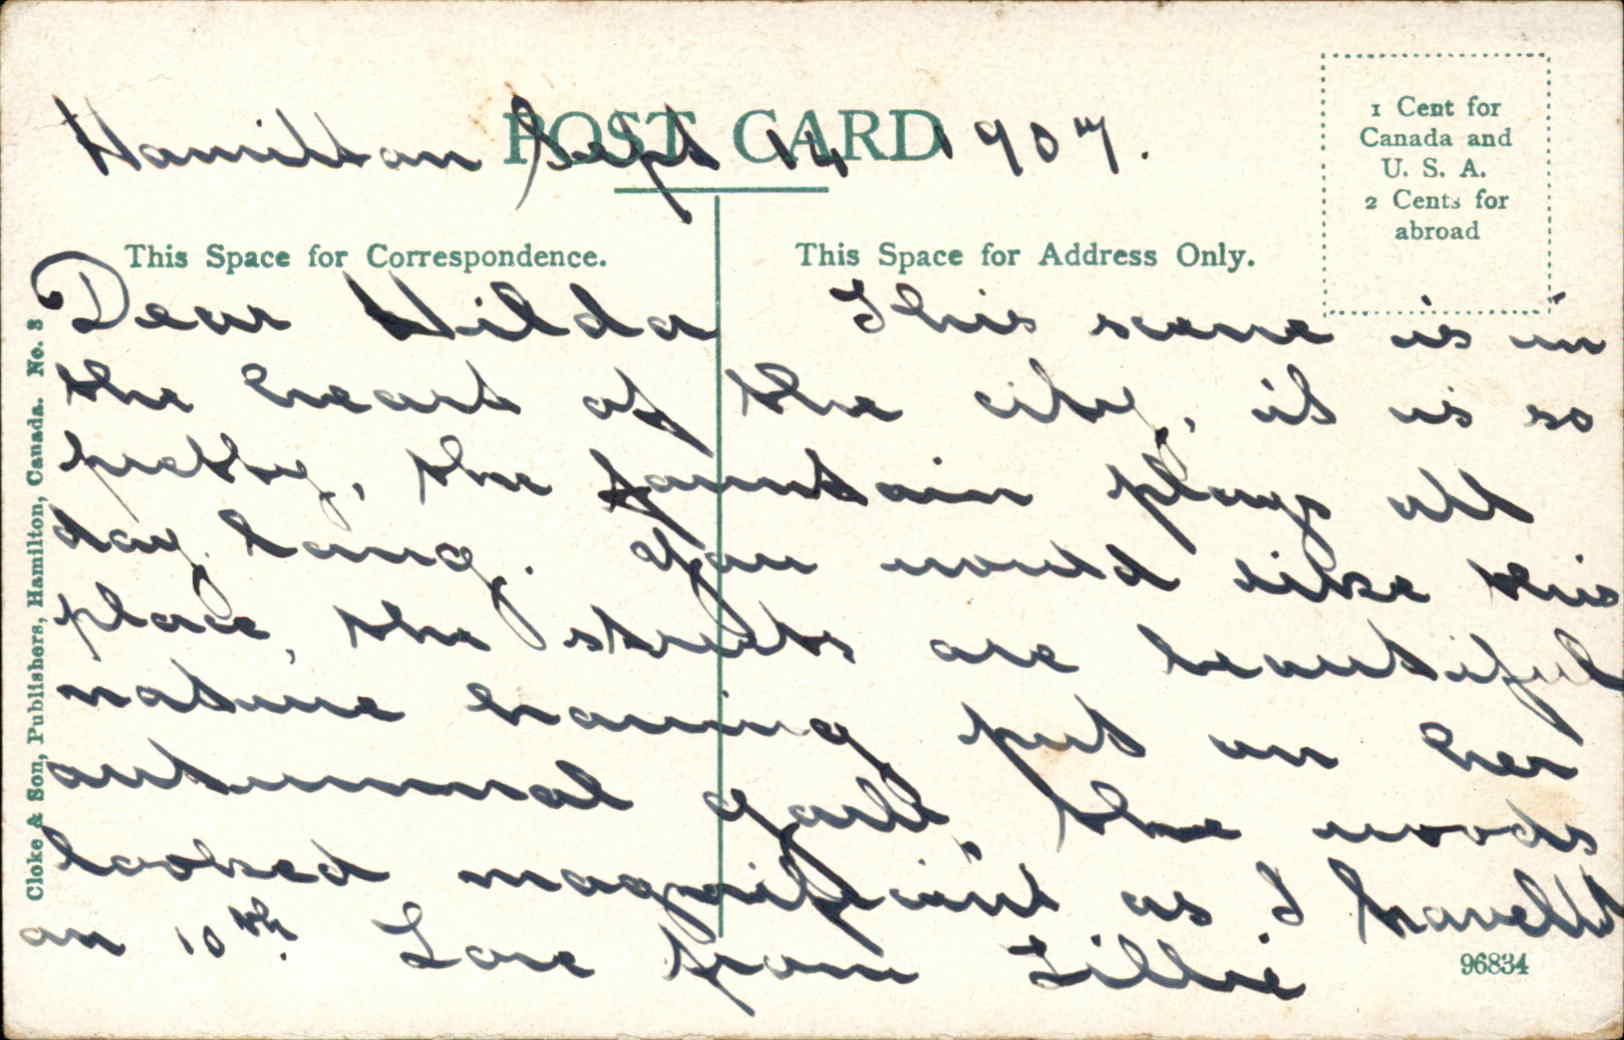 POST CARD
Hamilton Sept 14 1907.
1 Cent for
Canada and
U. S. A.
2 Cents for
abroad
This Space for Correspondence.
This Space for Address Only.
Dear Hilda This scene is in
the heart of the city, it is so
pretty, the fountain plays all
day long. You would like this
place, the streets are beautiful
nature having put on her
autumnal garb, the woods
looked magnificent as I travelld
on 10th. Love from Lillie
96834
Cloke & Son, Publishers, Hamilton, Canada. No. 3